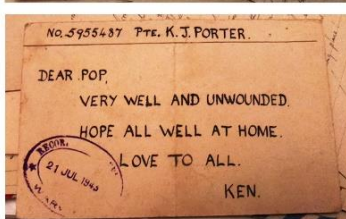 NO. 5955487 PTE. K. J. PORTER.
DEAR POP,
VERY WELL AND UNWOUNDED.
HOPE ALL WELL AT HOME.
LOVE TO ALL.
KEN.
21 JUL 1943